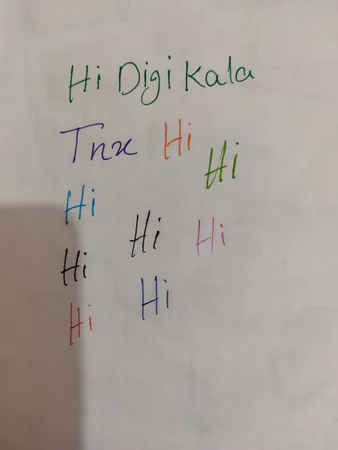 Hi Digikala
Tnx Hi
Hi
Hi
Hi Hi
Hi
Hi
Hi